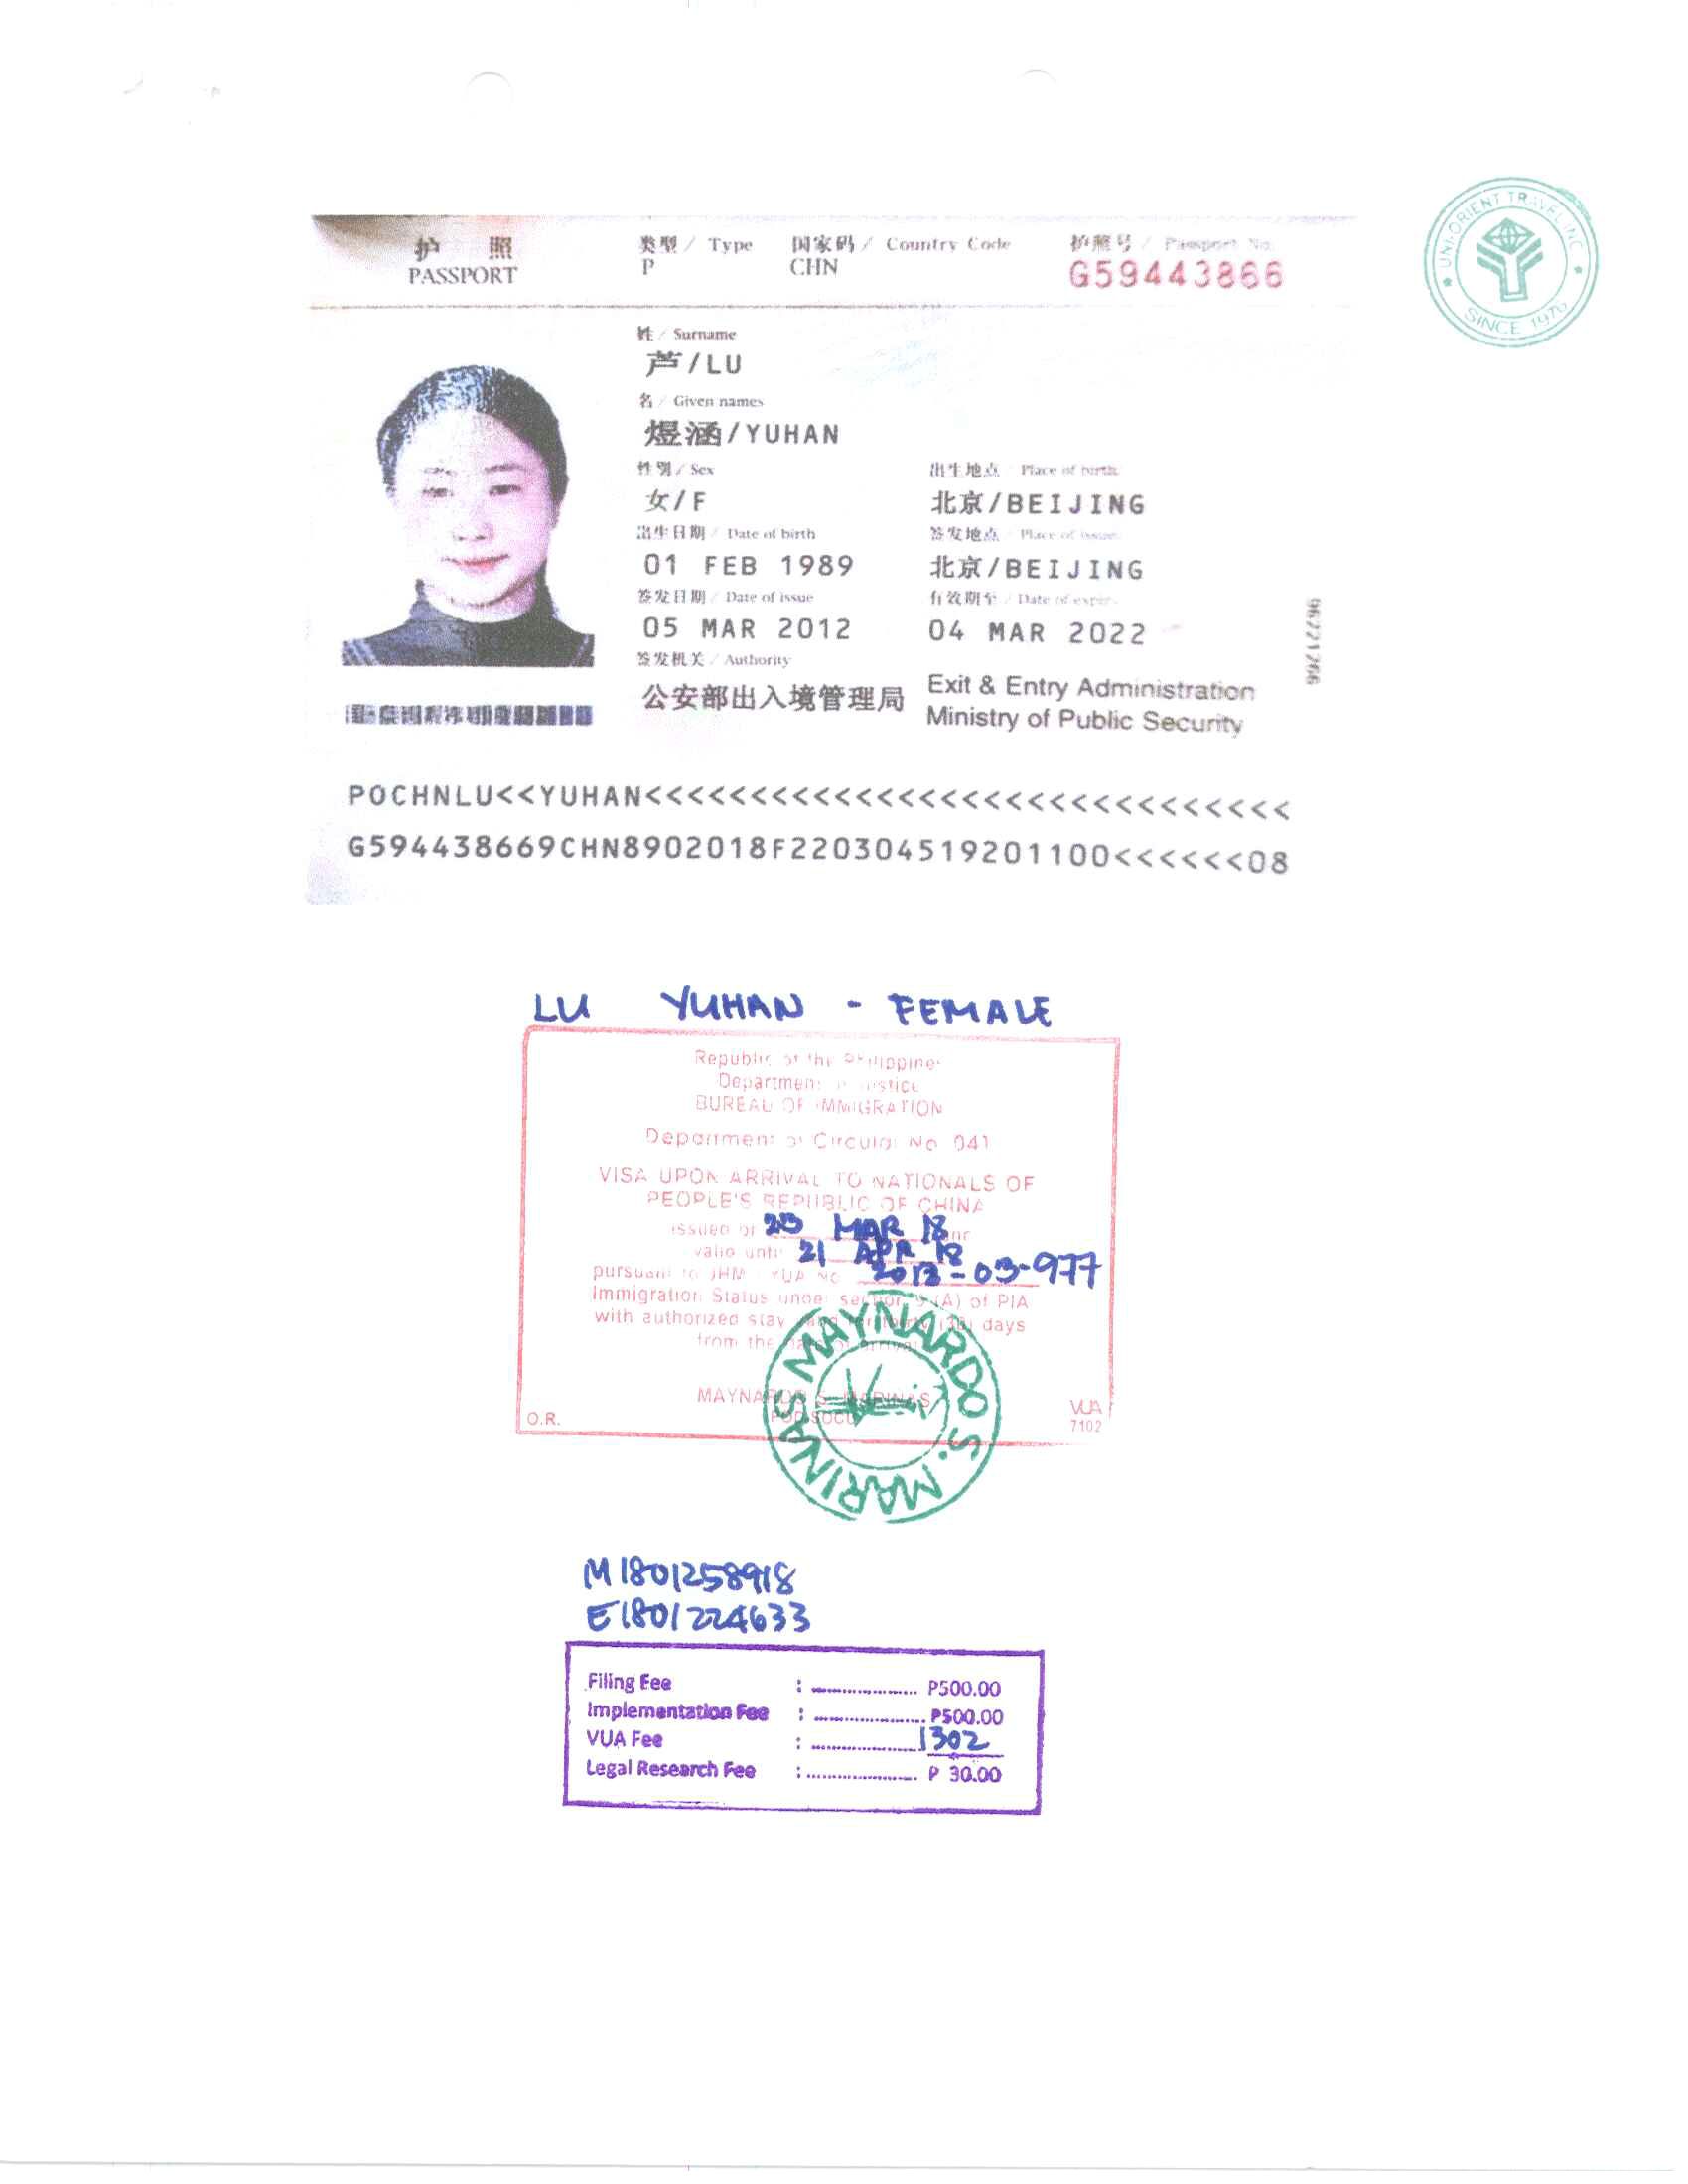 护 照
PASSPORT
类型 / Type
P
国家码 / Country Code
CHN
护照号 / Passport No.
G59443866
UNI-ORIENT TRAVEL INC
SINCE 1976
姓 / Surname
芦/LU
名 / Given names
煜涵/YUHAN
性别 / Sex
女/F
出生地点 / Place of birth
北京/BEIJING
出生日期 / Date of birth
01 FEB 1989
签发地点 / Place of issue
北京/BEIJING
签发日期 / Date of issue
05 MAR 2012
有效期至 / Date of expiry
04 MAR 2022
签发机关 / Authority
公安部出入境管理局
Exit & Entry Administration
Ministry of Public Security
96721766
POCHNLU<<YUHAN<<<<<<<<<<<<<<<<<<<<<<<<<<<<<<
G594438669CHN8902018F220304519201100<<<<<<08
LU YUHAN - FEMALE
Republic of the Philippines
Department of Justice
BUREAU OF IMMIGRATION
Department of Circular No 041
VISA UPON ARRIVAL TO NATIONALS OF
PEOPLE'S REPUBLIC OF CHINA
issued on 23 MAR 18 and
valid until 21 APR 18
pursuant to JHM VUA No 2018-03-977
Immigration Status under section 9 (A) of PIA
with authorized stay thirty (30) days
from the date of arrival
MAYNARDO S. MARINAS
O.R.
VUA
7102
MAYNARDO S. MARINAS
M1801258918
E1801224633
Filing Fee : P500.00
Implementation Fee : P500.00
VUA Fee : 1302
Legal Research Fee : P 30.00